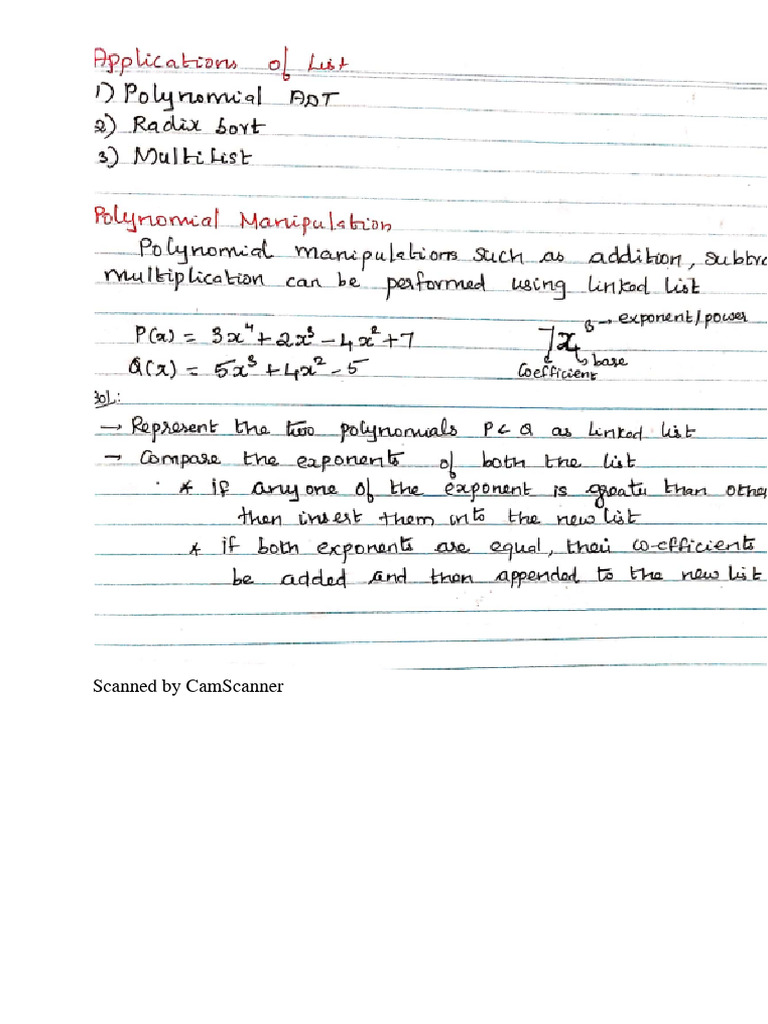 Applications of List
1) Polynomial ADT
2) Radix Sort
3) Multilist
Polynomial Manipulation
Polynomial manipulations such as addition, subtra
multiplication can be performed using linked list
P(x) = 3x⁴ + 2x³ - 4x² + 7
7x⁸ → exponent/power
base
Q(x) = 5x³ + 4x² - 5
Coefficient
SOL:
→ Represent the two polynomials P & Q as linked list
→ Compare the exponents of both the list
* if anyone of the exponent is greater than other
then insert them into the new list
* if both exponents are equal, their co-efficients
be added and then appended to the new list
Scanned by CamScanner